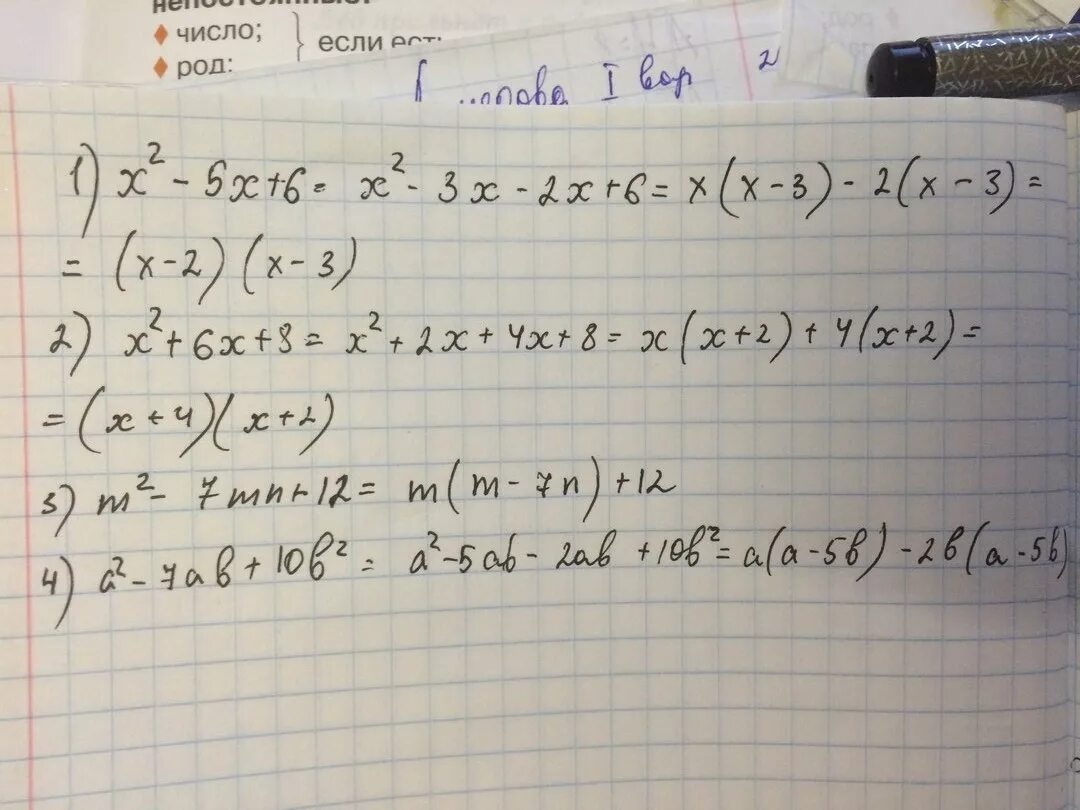 непостоянные:
♦ число;
♦ род:
если ест:
I вар
2
1) x² - 5x+6 = x² - 3x - 2x+6 = x(x-3) - 2(x-3) =
= (x-2)(x-3)
2) x² + 6x+8 = x² + 2x + 4x + 8 = x(x+2) + 4(x+2) =
= (x+4)(x+2)
3) m² - 7mn+12 = m(m-7n)+12
4) a² - 7ab + 10b² = a² - 5ab - 2ab + 10b² = a(a-5b) - 2b(a-5b)